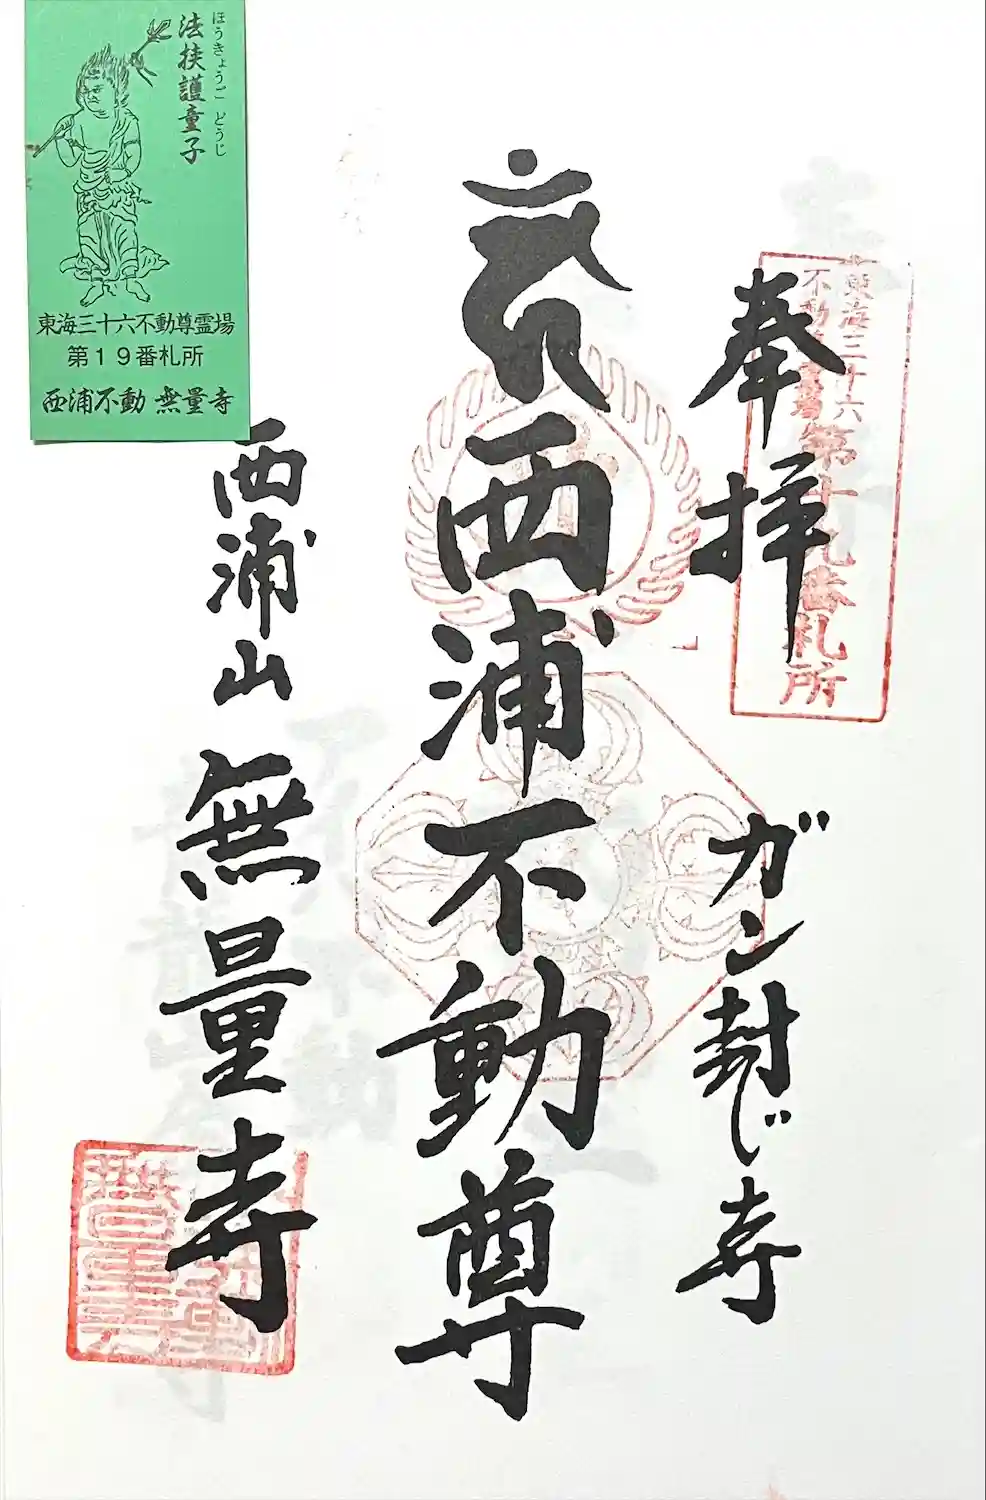 法挟護童子
ほうきょうご どうじ
東海三十六不動尊霊場
第19番札所
西浦不動 無量寺
東海三十六
不動尊霊場
第十九番札所
奉拝
ガン封じ寺
西浦不動尊
西浦山 無量寺